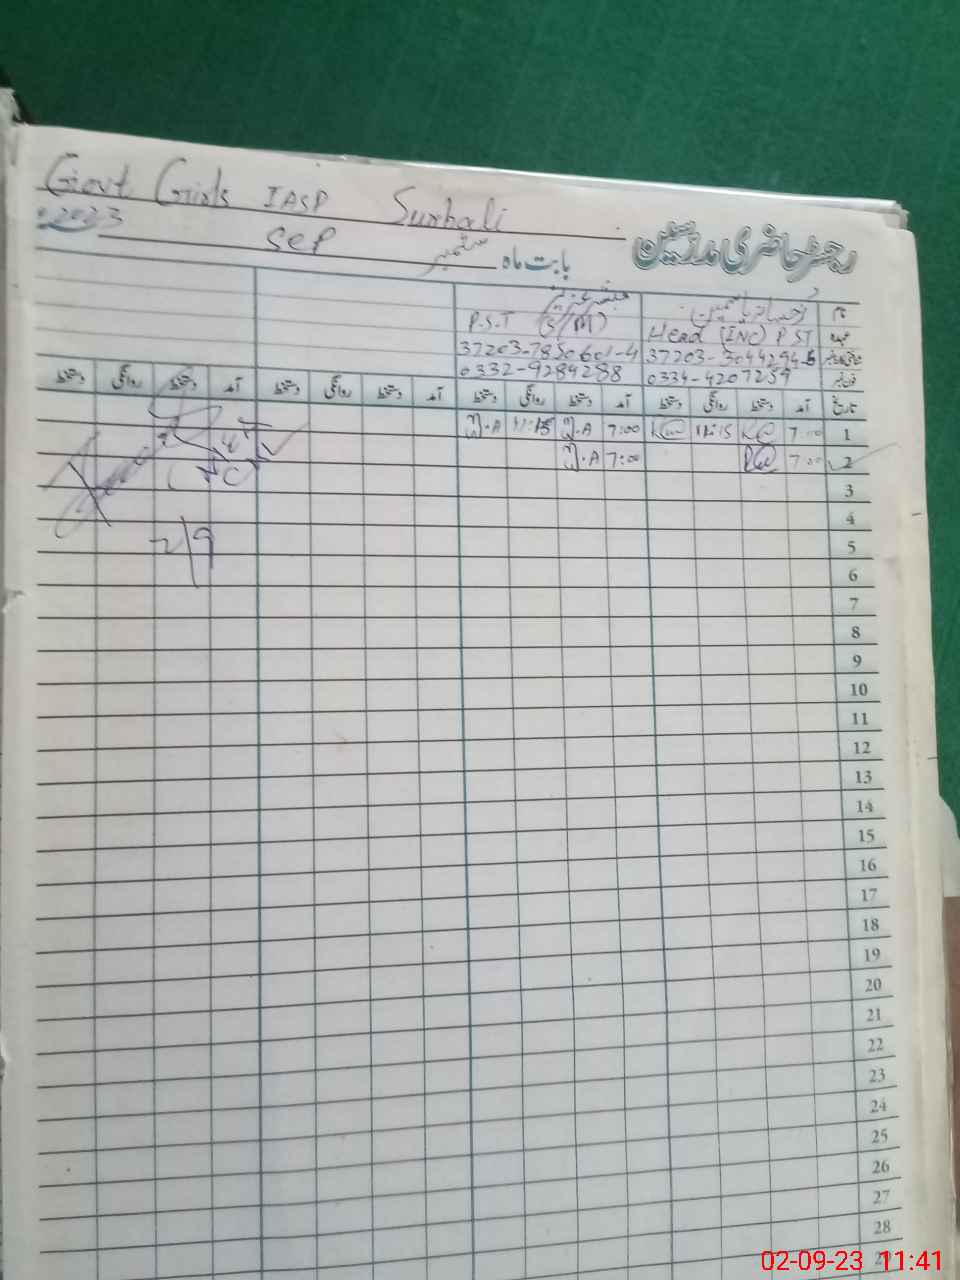 Govt Girls IASP Surhali
رجسٹر حاضری مدرسین
2023 Sep ستمبر بابت ماہ
نام
P.S.T (S/M) Head (INC) PST عہدہ
37203-7850601-4 37203-3044294-6
0332-9284288 0334-4207259
تاریخ آمد دستخط روانگی دستخط آمد دستخط روانگی دستخط آمد دستخط روانگی دستخط آمد دستخط روانگی دستخط
1 7:00 11:15 7:00 11:15
2 7:00 7:00
3
4
2/9
5
6
7
8
9
10
11
12
13
14
15
16
17
18
19
20
21
22
23
24
25
26
27
28
02-09-23 11:41